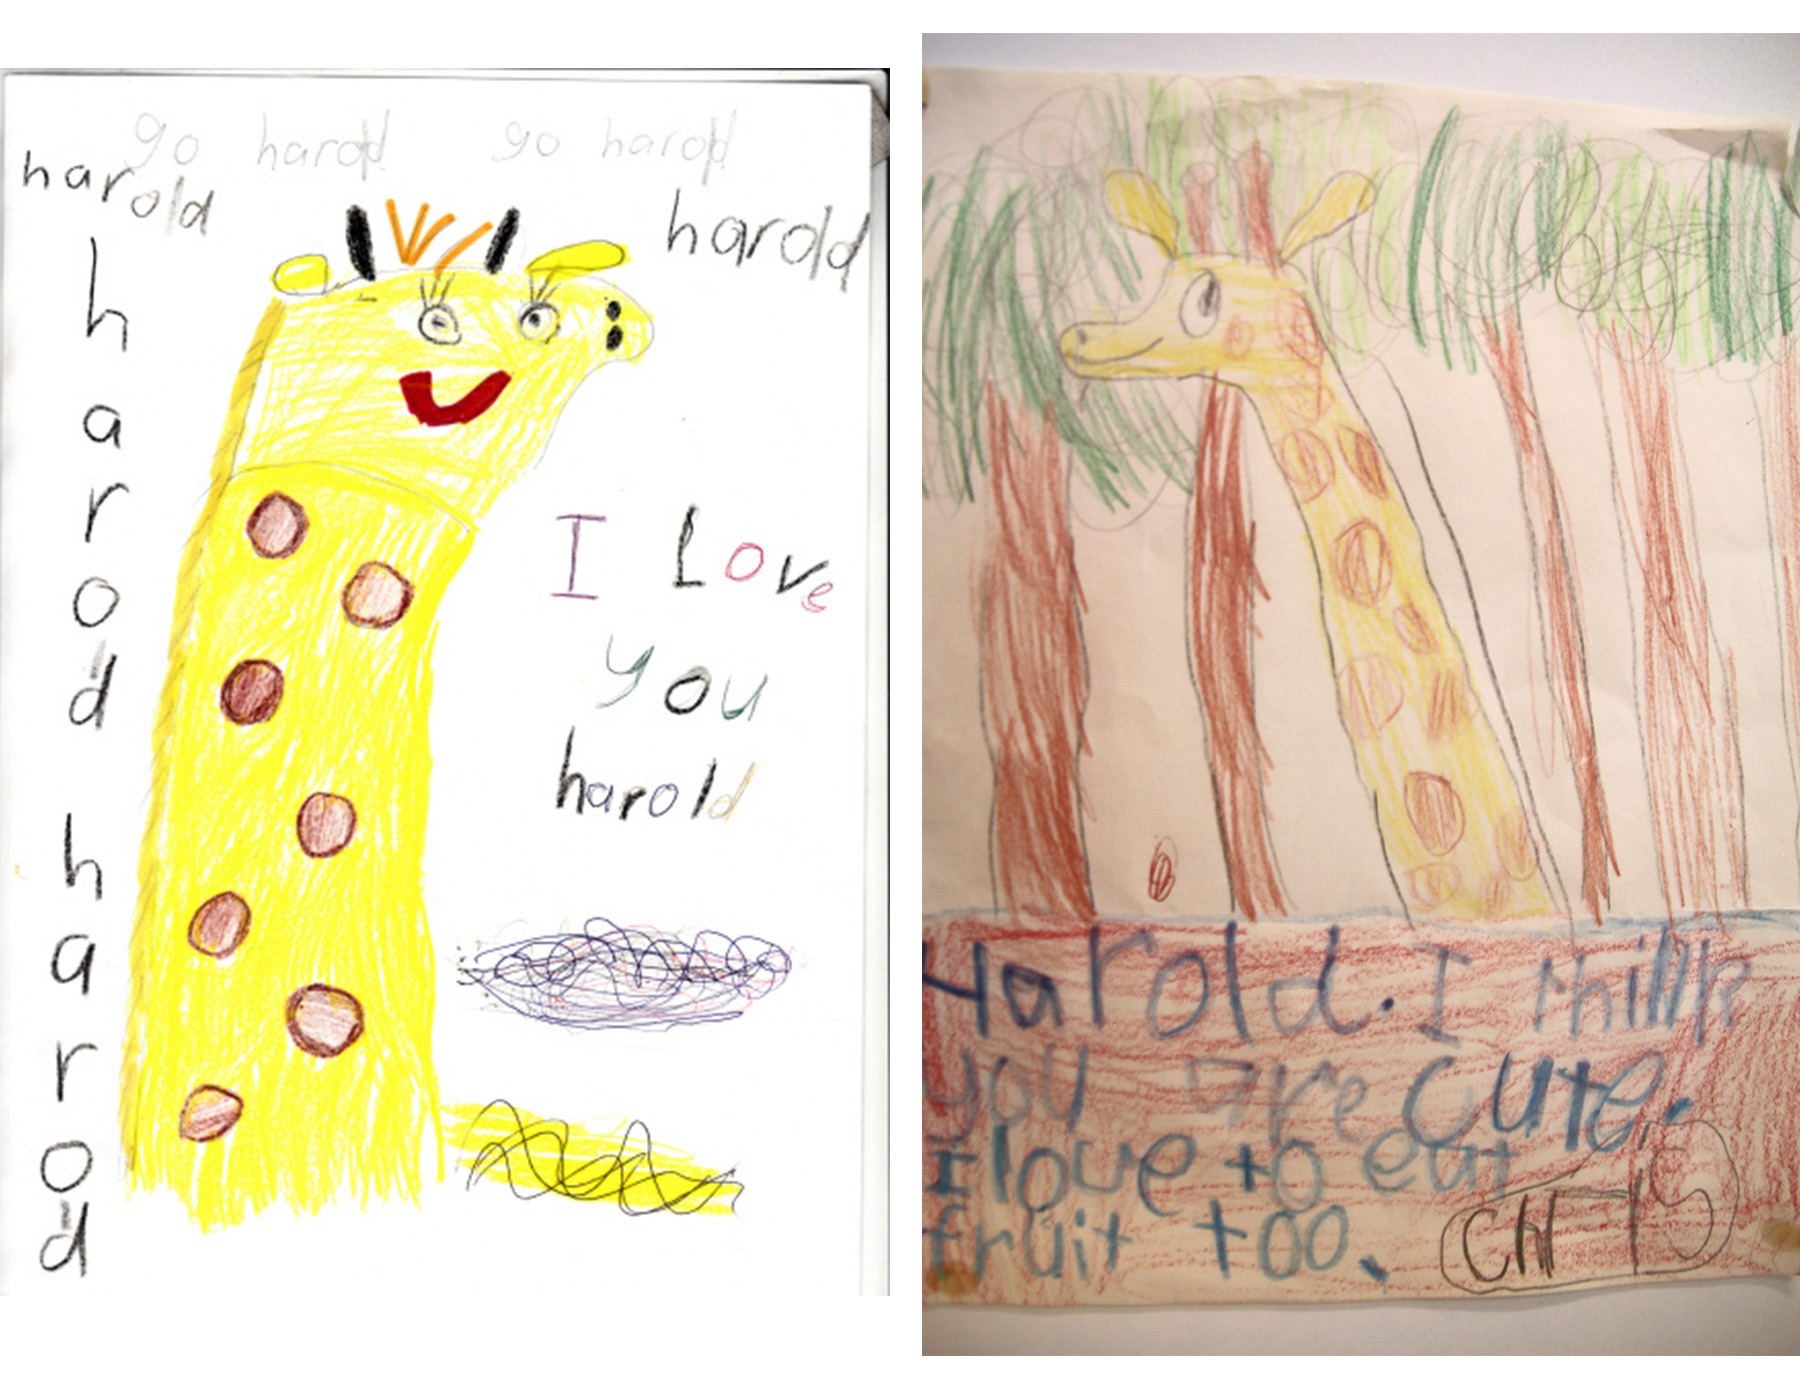 go harold go harold
harold
harold
harod harod
I Love
you
harold
Harold. I think
you are cute.
I love to eat
fruit too.